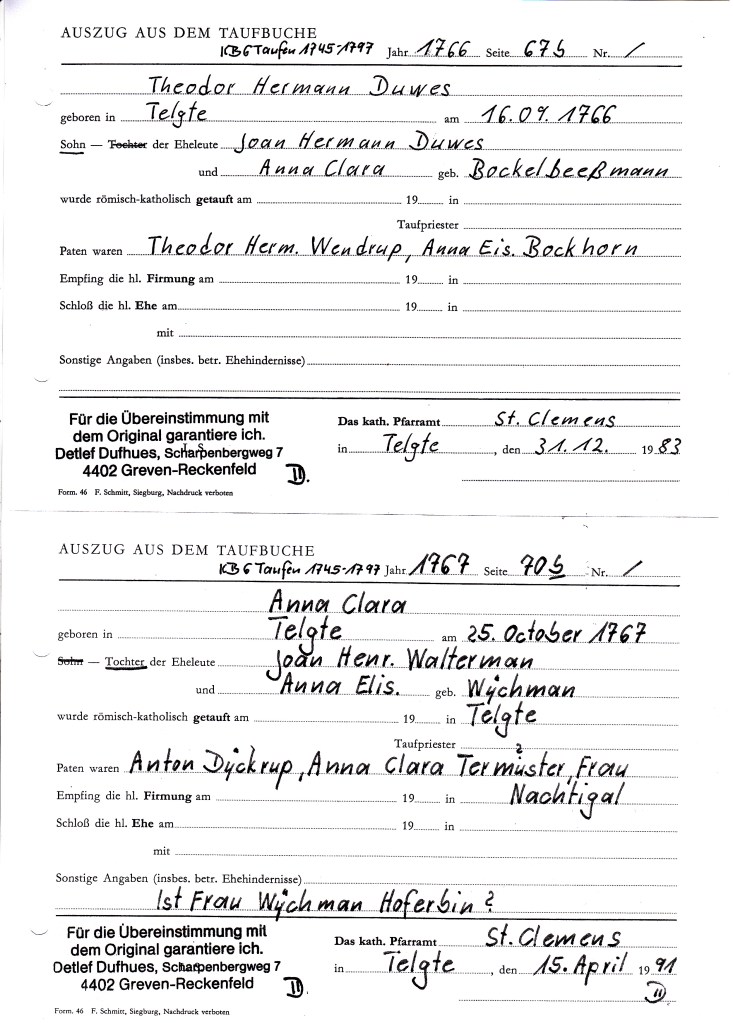 AUSZUG AUS DEM TAUFBUCHE
KB 6 Taufen 1745-1797 Jahr 1766 Seite 67b Nr. /
Theodor Hermann Duwes
geboren in Telgte am 16.09.1766
Sohn — Tochter der Eheleute Joan Hermann Duwes
und Anna Clara geb. Bockelbeeßmann
wurde römisch-katholisch getauft am 19 in
Taufpriester
Paten waren Theodor Herm. Wendrup, Anna Eis. Bockhorn
Empfing die hl. Firmung am 19 in
Schloß die hl. Ehe am 19 in
mit
Sonstige Angaben (insbes. betr. Ehehindernisse)
Für die Übereinstimming mit
dem Original garantiere ich.
Detlef Dufhues, Scharpenbergweg 7
4402 Greven-Reckenfeld
Das kath. Pfarramt St. Clemens
in Telgte, den 31.12. 1983
Form. 46 F. Schmitt, Siegburg, Nachdruck verboten
AUSZUG AUS DEM TAUFBUCHE
KB 6 Taufen 1745-1797 Jahr 1767 Seite 70b Nr. /
Anna Clara
geboren in Telgte am 25. October 1767
Sohn — Tochter der Eheleute Joan Henr. Walterman
und Anna Elis. geb. Wÿchman
wurde römisch-katholisch getauft am 19 in Telgte
Taufpriester
?
Paten waren Anton Dÿckrup, Anna Clara Termüster, Frau
Nachtigal
Empfing die hl. Firmung am 19 in
Schloß die hl. Ehe am 19 in
mit
Sonstige Angaben (insbes. betr. Ehehindernisse)
Ist Frau Wÿchman Hoferbin?
Für die Übereinstimmung mit
dem Original garantiere ich.
Detlef Dufhues, Scharpenbergweg 7
4402 Greven-Reckenfeld
Das kath. Pfarramt St. Clemens
in Telgte, den 15. April 1991
Form. 46 F. Schmitt, Siegburg, Nachdruck verboten